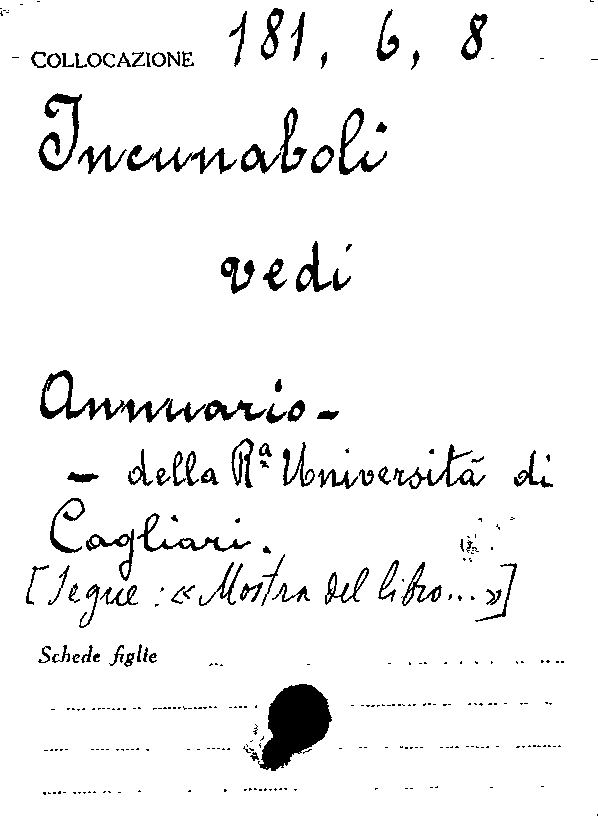 COLLOCAZIONE 181, 6, 8
Incunaboli
vedi
Annuario -
- della Rª Università di
Cagliari.
[Segue: « Mostra del libro... »]
Schede figlie